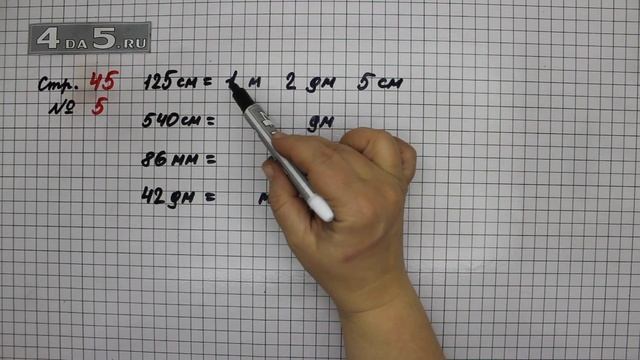 4 DA 5.RU
Стр. 45 125 см = 1 м 2 дм 5 см
№ 5
540 см = дм
86 мм =
42 дм = м